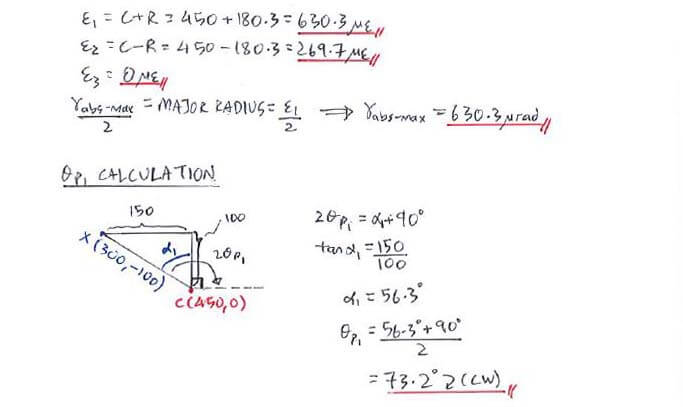 ε1 = C+R = 450+180.3 = 630.3 με
ε2 = C-R = 450-180.3 = 269.7 με
ε3 = 0 με
γabs-max/2 = MAJOR RADIUS = ε1/2 ⟹ γabs-max = 630.3 μrad
θp1 CALCULATION
150
100
X (300,-100)
α1
2θp1
C(450,0)
2θp1 = α1+90°
tanα1 = 150/100
α1 = 56.3°
θp1 = 56.3°+90°/2
= 73.2° 2 (CW)